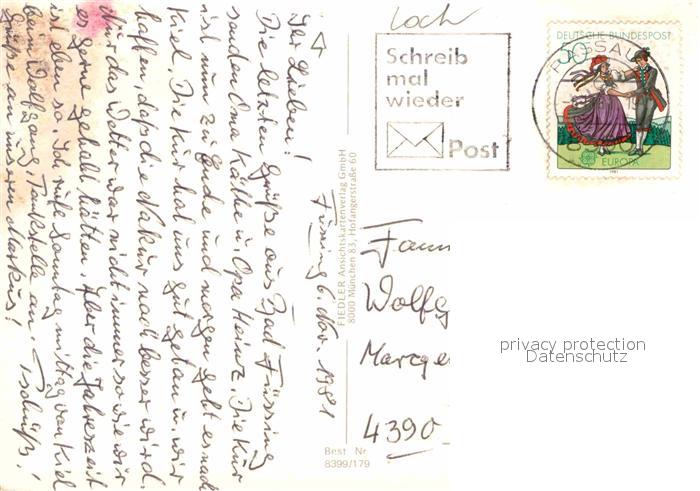 Loch
Schreib
mal
wieder
Post
DEUTSCHE BUNDESPOST
50
PASSAU
EUROPA
1981
Füssing 6. Nov. 1981
Ihr Lieben!
Die letzten Grüße aus Bad Füssing
senden Oma Käthe u. Opa Heinz. Die Kur
ist nun zu Ende und morgen geht es nach
Kiel. Die Kur hat uns gut getan u. wir
hoffen, daß die Nakur noch besser wird.
Nur das Wetter war nicht immer so wie wir
es gerne gehabt hätten. Aber die Jahreszeit
ist eben so. Ich rufe Sonntag mittag von Kiel
bei Wolfgang, Tankstelle an. Tschüß!
Grüße an unsern Markus!
FIEDLER Ansichtskartenverlag GmbH
8000 München 83, Hofangerstraße 60
Best. Nr.
8399/179
Fam
Wolfg
Marge
4390
privacy protection
Datenschutz